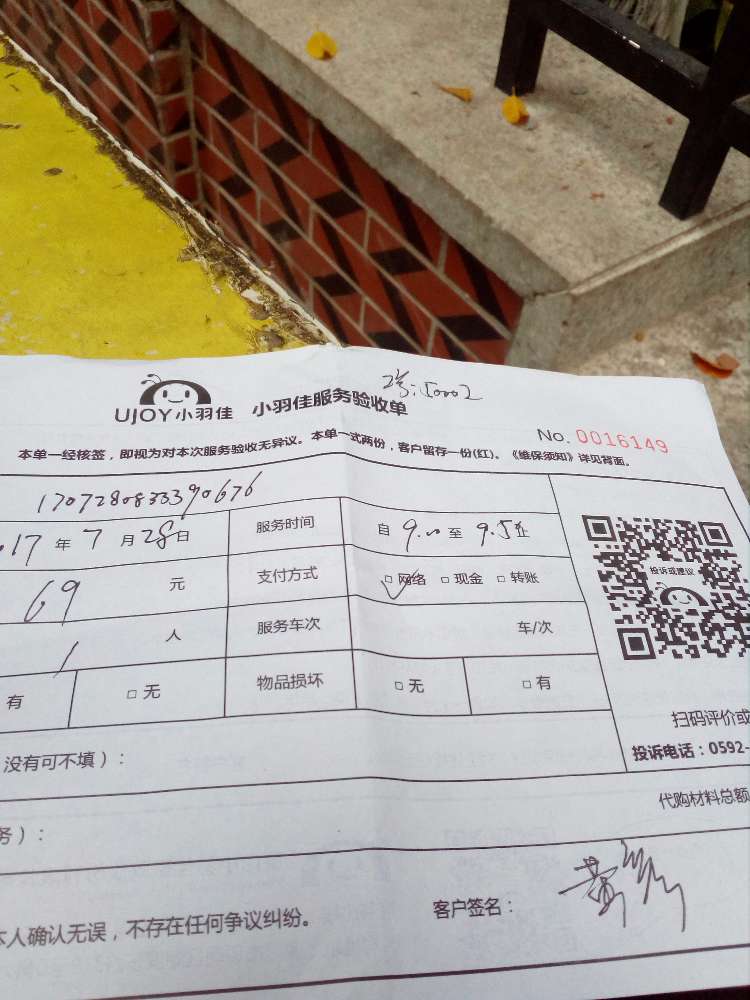 UJOY小羽佳 小羽佳服务验收单
No. 0016149
本单一经核签，即视为对本次服务验收无异议。本单一式两份，客户留存一份(红)。《维保须知》详见背面。
170728083390676
17 年 7 月 28 日 服务时间 自 9.00 至 9.5
69 元 支付方式 □网络 □现金 □转账
投诉或建议
1 人 服务车次 车/次
有 □无 物品损坏 □无 □有
扫码评价或
没有可不填）：
投诉电话：0592-
代购材料总额
务）：
客户签名：
本人确认无误，不存在任何争议纠纷。